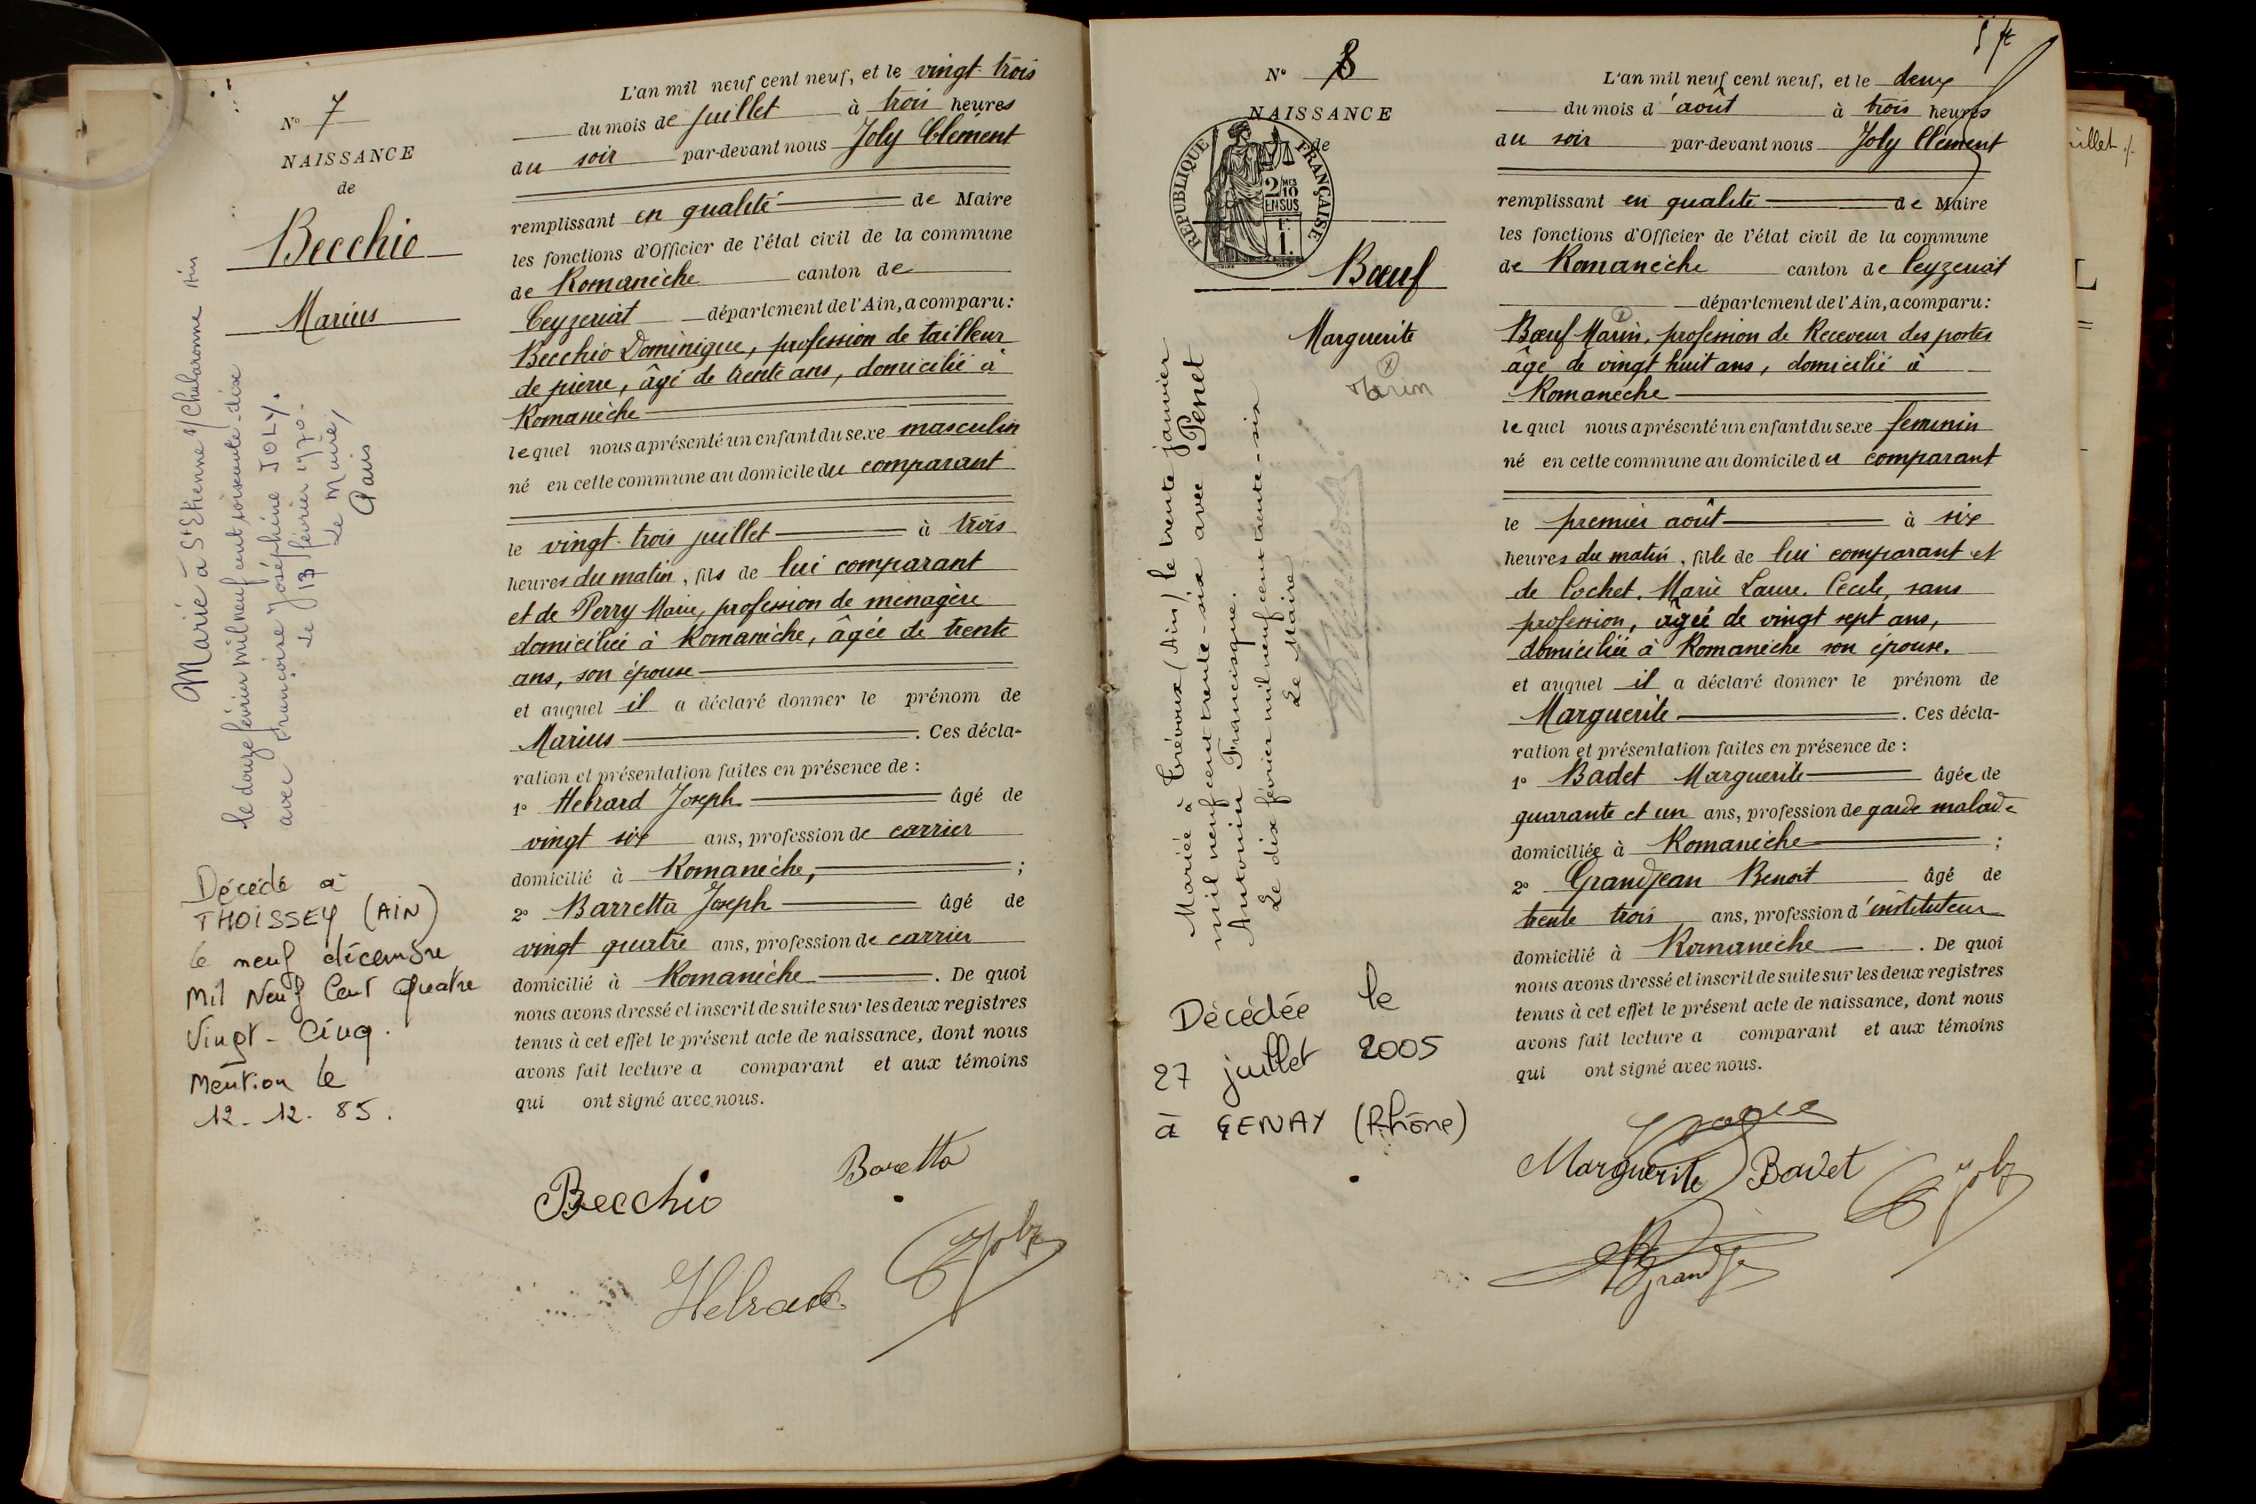 N° 7
NAISSANCE
de
Becchio
Marius
Marié à St Etienne s/ Chalaronne Ain
le douze février mil neuf cent soixante-dix
avec Françoise Joséphine JOLY.
Le 13 février 1970.
Le Maire,
Décédé à
THOISSEY (AIN)
le neuf décembre
Mil Neuf Cent Quatre
Vingt-Cinq.
Mention le
12-12-85.
L'an mil neuf cent neuf, et le vingt trois
du mois de juillet à trois heures
du soir par-devant nous Joly Clément
remplissant en qualité de Maire
les fonctions d'Officier de l'état civil de la commune
de Romanèche canton de
Ceyzeriat département de l'Ain, a comparu:
Becchio Dominique, profession de tailleur
de pierre, âgé de trente ans, domicilié à
Romanèche
lequel nous a présenté un enfant du sexe masculin
né en cette commune au domicile du comparant
le vingt-trois juillet à trois
heures du matin, fils de lui comparant
et de Perry Marie, profession de ménagère
domiciliée à Romanèche, âgée de trente
ans, son épouse
et auquel il a déclaré donner le prénom de
Marius. Ces décla-
ration et présentation faites en présence de:
1° Hebrard Joseph âgé de
vingt six ans, profession de carrier
domicilié à Romanèche, ;
2° Barretta Joseph âgé de
vingt quatre ans, profession de carrier
domicilié à Romanèche. De quoi
nous avons dressé et inscrit de suite sur les deux registres
tenus à cet effet le présent acte de naissance, dont nous
avons fait lecture a comparant et aux témoins
qui ont signé avec nous.
Becchio
Baretta
Hebrard
Joly
N° 8
NAISSANCE
de
RÉPUBLIQUE FRANÇAISE
2/10 MES
EN SUS
1.
Bœuf
Marguerite
Marin
Mariée à Trévoux (Ain) le trente janvier
mil neuf cent trente-six avec Penet
Antonin Francisque.
Le dix février mil neuf cent trente-six
Le Maire
Décédée le
27 juillet 2005
à GENAY (Rhône)
L'an mil neuf cent neuf, et le deux
du mois d'août à trois heures
du soir par-devant nous Joly Clément
remplissant en qualité de Maire
les fonctions d'Officier de l'état civil de la commune
de Romanèche canton de Ceyzeriat
département de l'Ain, a comparu:
Bœuf Marin, profession de Receveur des postes
âgé de vingt huit ans, domicilié à
Romanèche
lequel nous a présenté un enfant du sexe féminin
né en cette commune au domicile du comparant
le premier août à six
heures du matin, fille de lui comparant et
de Cochet. Marie Laure. Cécile, sans
profession, âgée de vingt sept ans,
domiciliée à Romanèche son épouse.
et auquel il a déclaré donner le prénom de
Marguerite. Ces décla-
ration et présentation faites en présence de:
1° Badet Marguerite âgée de
quarante et un ans, profession de garde malade
domiciliée à Romanèche ;
2° Grandjean Benoit âgé de
trente trois ans, profession d'instituteur
domicilié à Romanèche. De quoi
nous avons dressé et inscrit de suite sur les deux registres
tenus à cet effet le présent acte de naissance, dont nous
avons fait lecture a comparant et aux témoins
qui ont signé avec nous.
Marguerite Badet
Joly
uillet